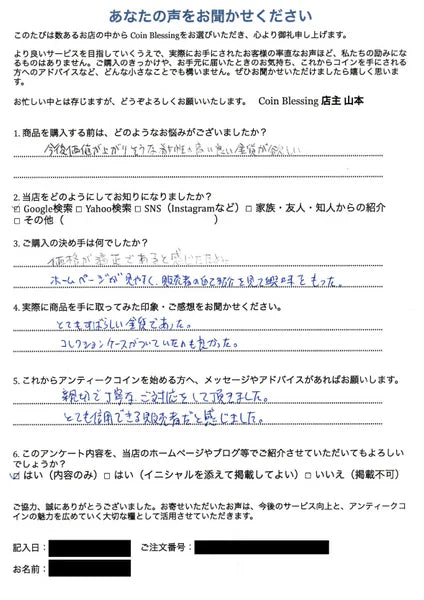 あなたの声をお聞かせください
このたびは数あるお店の中から Coin Blessingをお選びいただき、心より御礼申し上げます。
より良いサービスを目指していくうえで、実際にお手にされたお客様の率直なお声ほど、私たちの励みになるものはありません。ご購入のきっかけや、お手元に届いたときのお気持ち、これからコインを手にされる方へのアドバイスなど、どんな小さなことでも構いません。ぜひお聞かせいただけましたら嬉しく思います。
お忙しい中とは存じますが、どうぞよろしくお願いいたします。 Coin Blessing 店主 山本
1. 商品を購入する前は、どのようなお悩みがございましたか?
今後価値が上がりそうな 良い金貨が欲しい
2. 当店をどのようにしてお知りになりましたか?
☑ Google検索 □ Yahoo検索 □ SNS(Instagramなど) □ 家族・友人・知人からの紹介
□ その他( )
3. ご購入の決め手は何でしたか?
価格が適正であると感じたため。
ホームページが見やすく、販売者の自己紹介を見て興味をもった。
4. 実際に商品を手に取ってみた印象・ご感想をお聞かせください。
とてもすばらしい金貨であった。
コレクションケースがついていたのも良かった。
5. これからアンティークコインを始める方へ、メッセージやアドバイスがあればお願いします。
親切で丁寧なご対応をして頂きました。
とても信用できる販売者だと感じました。
6. このアンケート内容を、当店のホームページやブログ等でご紹介させていただいてもよろしいでしょうか?
☑ はい(内容のみ) □ はい(イニシャルを添えて掲載してよい) □ いいえ(掲載不可)
ご協力、誠にありがとうございました。お寄せいただいたお声は、今後のサービス向上と、アンティークコインの魅力を広めていく大切な糧として活用させていただきます。
記入日: ご注文番号:
お名前: